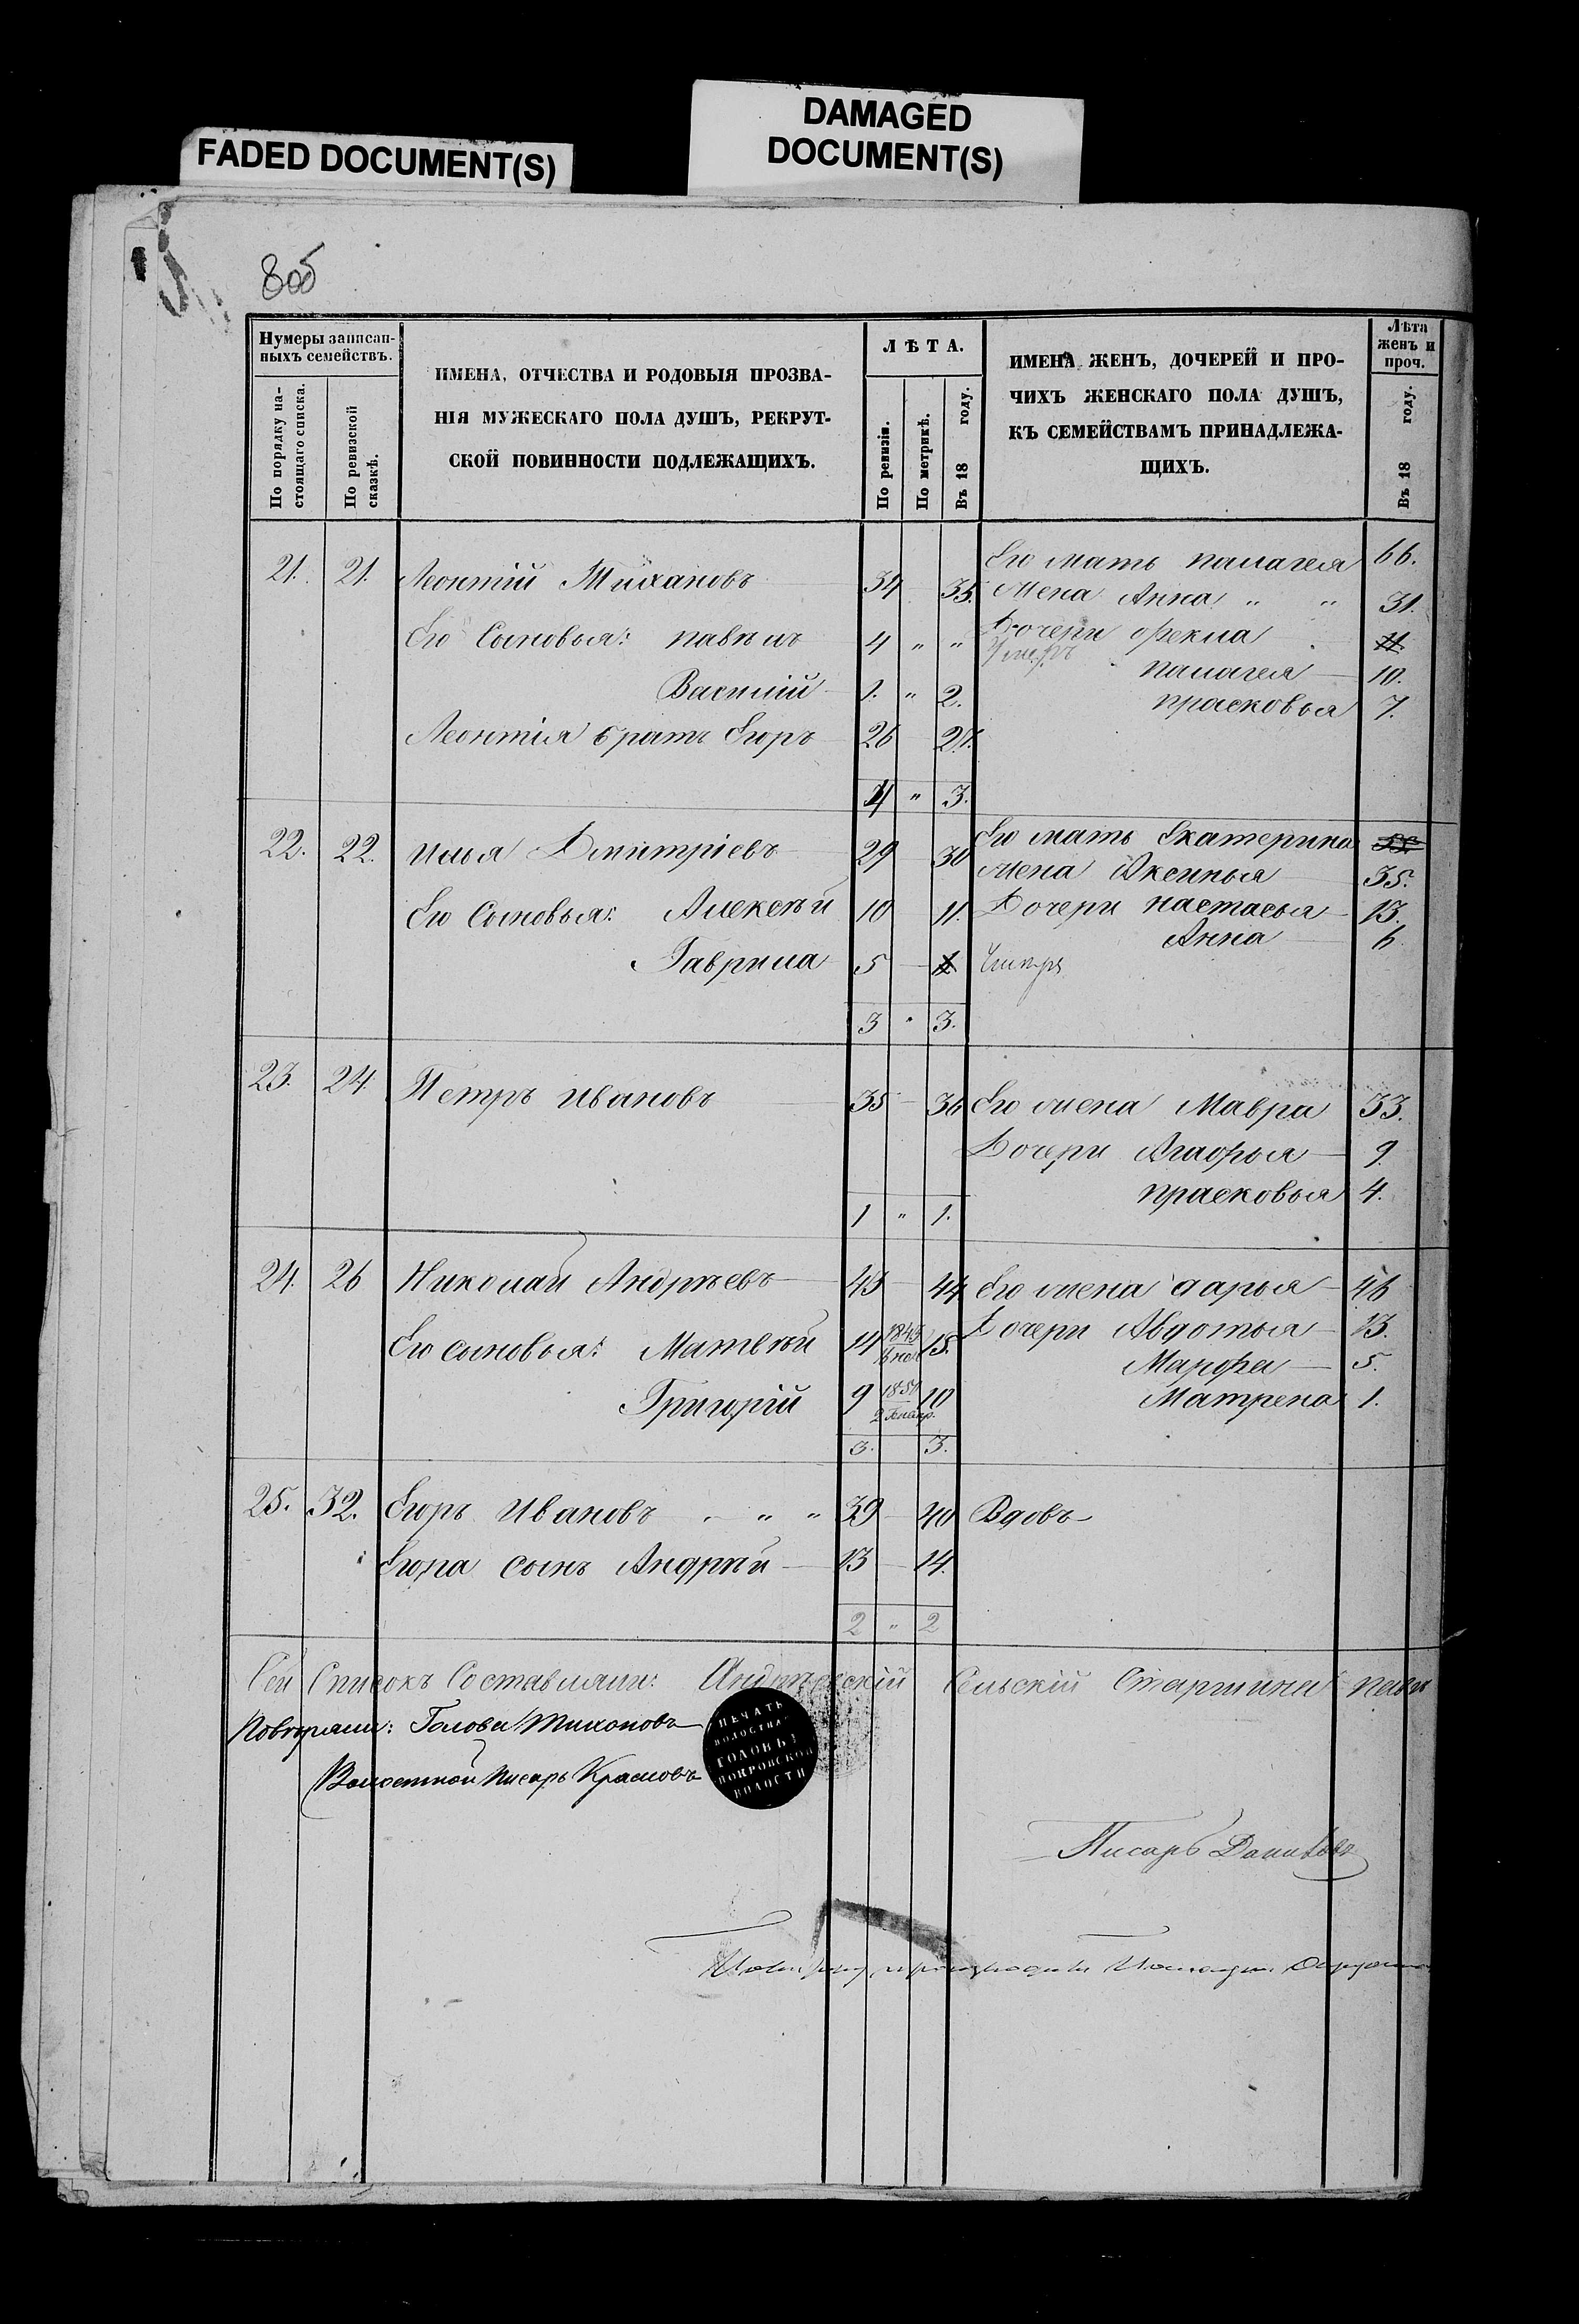 FADED DOCUMENT(S)
DAMAGED
DOCUMENT(S)
8об
Нумеры записан-
ныхъ семействъ.
По порядку на-
стоящаго списка.
По ревизской
сказкѣ.
ИМЕНА, ОТЧЕСТВА И РОДОВЫЯ ПРОЗВА-
НІЯ МУЖЕСКАГО ПОЛА ДУШЪ, РЕКРУТ-
СКОЙ ПОВИННОСТИ ПОДЛЕЖАЩИХЪ.
ЛѢТА.
По ревизіи.
По метрикѣ.
Въ 18 году.
ИМЕНА ЖЕНЪ, ДОЧЕРЕЙ И ПРО-
ЧИХЪ ЖЕНСКАГО ПОЛА ДУШЪ,
КЪ СЕМЕЙСТВАМЪ ПРИНАДЛЕЖА-
ЩИХЪ.
Лѣта
женъ и
проч.
Въ 18 году.
Его мать палагея 66.
21. 21. Леонтій Тихановъ 34 35. Жена Анна " " 31.
Дочери Фекла 11.
Его Сыновья: павелъ 4 " " Умеръ
палагея 10.
Василій 1. " 2. прасковья 7.
Леонтія братъ Егоръ 26 27.
4 " 3.
Его мать Екатерина
22. 22. Илья Дмитріевъ 29 30 жена Аксинья 35.
Его Сыновья: Алексѣй 10 11. Дочери настасья 13.
Анна 6
Гаврила 5 Умеръ
3 " 3.
23. 24. Петръ Ивановъ 35 36 Его жена Мавра 33.
Дочери Агафья 9.
прасковья 4.
1 " 1.
24. 26 Николай Андрѣевъ 43 44 Его жена дарья 46
Его сыновья: Матвѣй 14 1845 15. Дочери Авдотья 13.
Марфа 5.
Григорій 9 1850 10 Матрена 1.
3. 3.
25. 32. Егоръ Ивановъ " " 39 40 Вдовъ
Егора сынъ Андрѣй 13 14.
2 " 2
Сей Списокъ Составляли: Андрѣевскій Сельскій Старшина
Повѣряли: Голова Тихоновъ
Волостной Писарь Красновъ
ПЕЧАТЬ
ВОЛОСТНАГ
ГОЛОВЫ
ПОКРОВСКОЙ
ВОЛОСТИ
Писарь Даниловъ